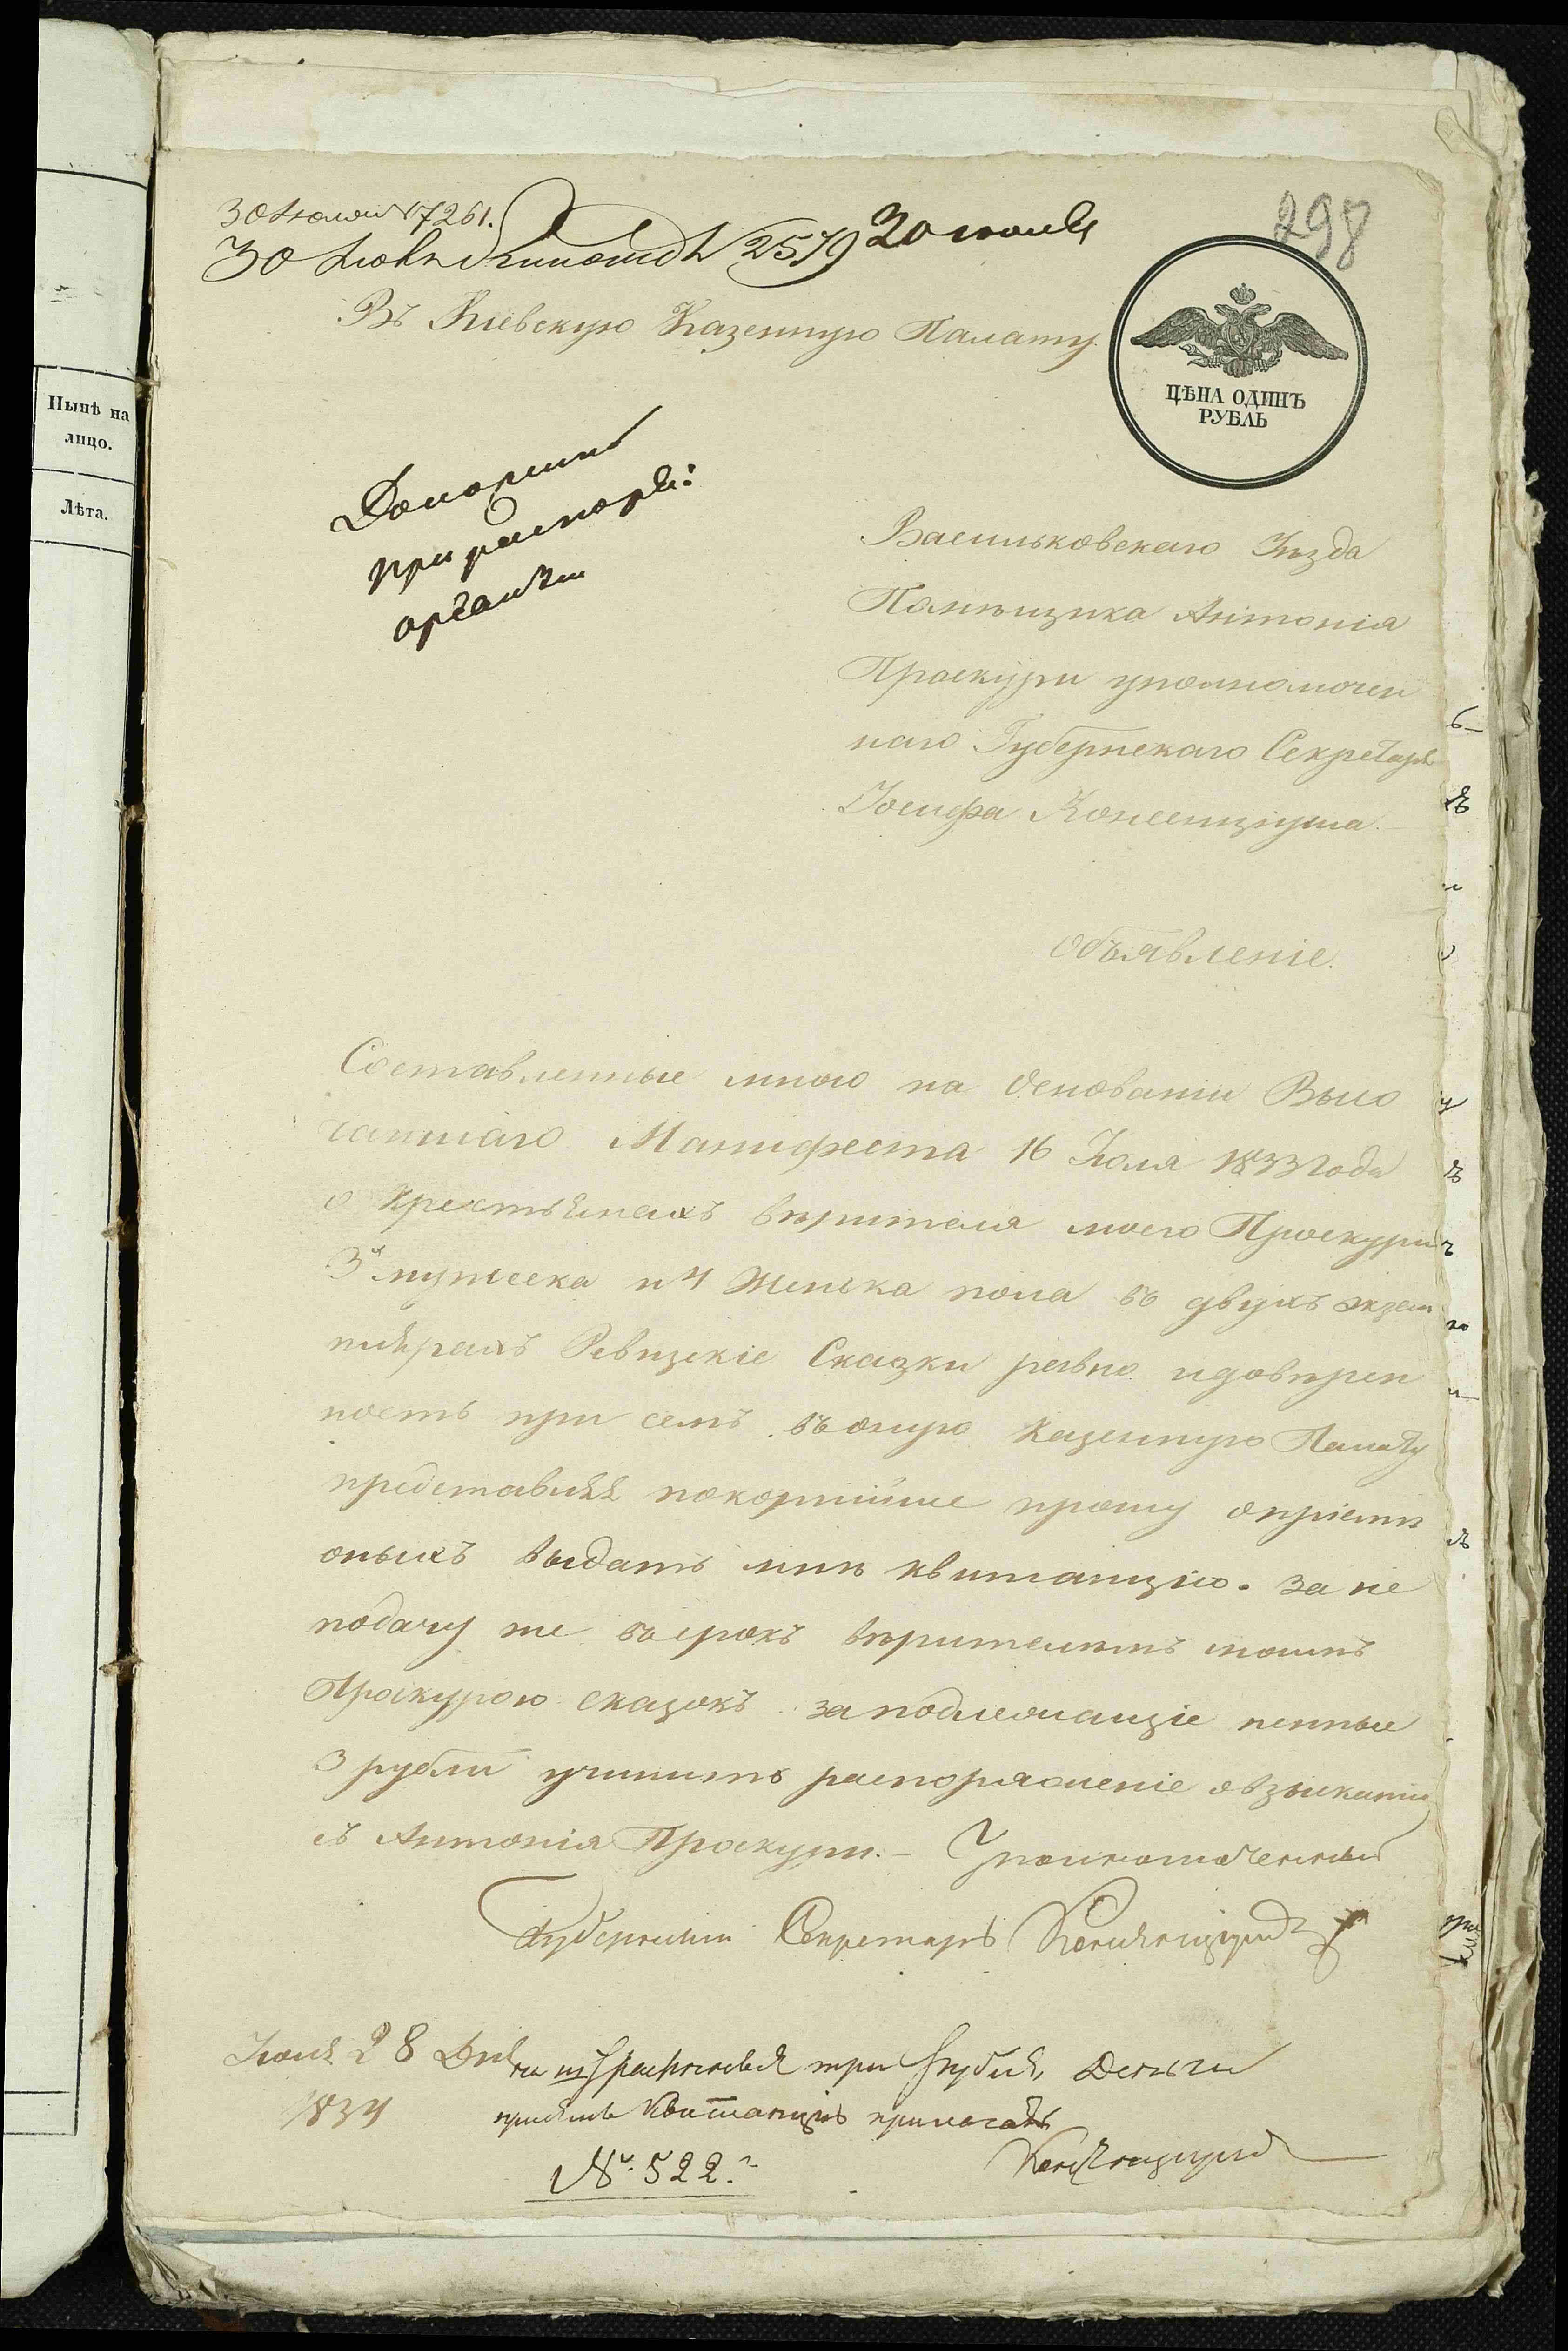 298
30 Июля 17261.
30 Июля 2579 30 июля
Въ Кіевскую Казенную Палату
ЦѢНА ОДИНЪ
РУБЛЬ
Доложить
при распоря:
Васильковскаго Уѣзда
Помѣщика Антонія
Проскуры уполномочен
наго Губернскаго Секретаря
Іосифа
Объявленіе.
Составленные мною на Основаніи Высо
чайшаго Манифеста 16 Іюля 1833 года
о Крестьянахъ вѣрителя моего Проскуры
3х мужеска и 4 Женска пола въ двухъ экзем
плярахъ Ревизскіе Сказки равно и довѣрен
ность при семъ въ оную Казенную Палату
представляя покорнѣйше прошу о пріемѣ
оныхъ выдать мнѣ квитанцію. За не
подачу же въ срокъ вѣрителемъ моимъ
Проскурою сказокъ за подлежащіе пенные
3 рубли учинить распоряженіе о взысканіи
съ Антонія Проскуры. – Уполномоченный
Губернскій Секретарь
Іюля 28 Дня три рубля, Деньги
1834 квитанцію
№ 522.
Нынѣ на
лицо.
Лѣта.